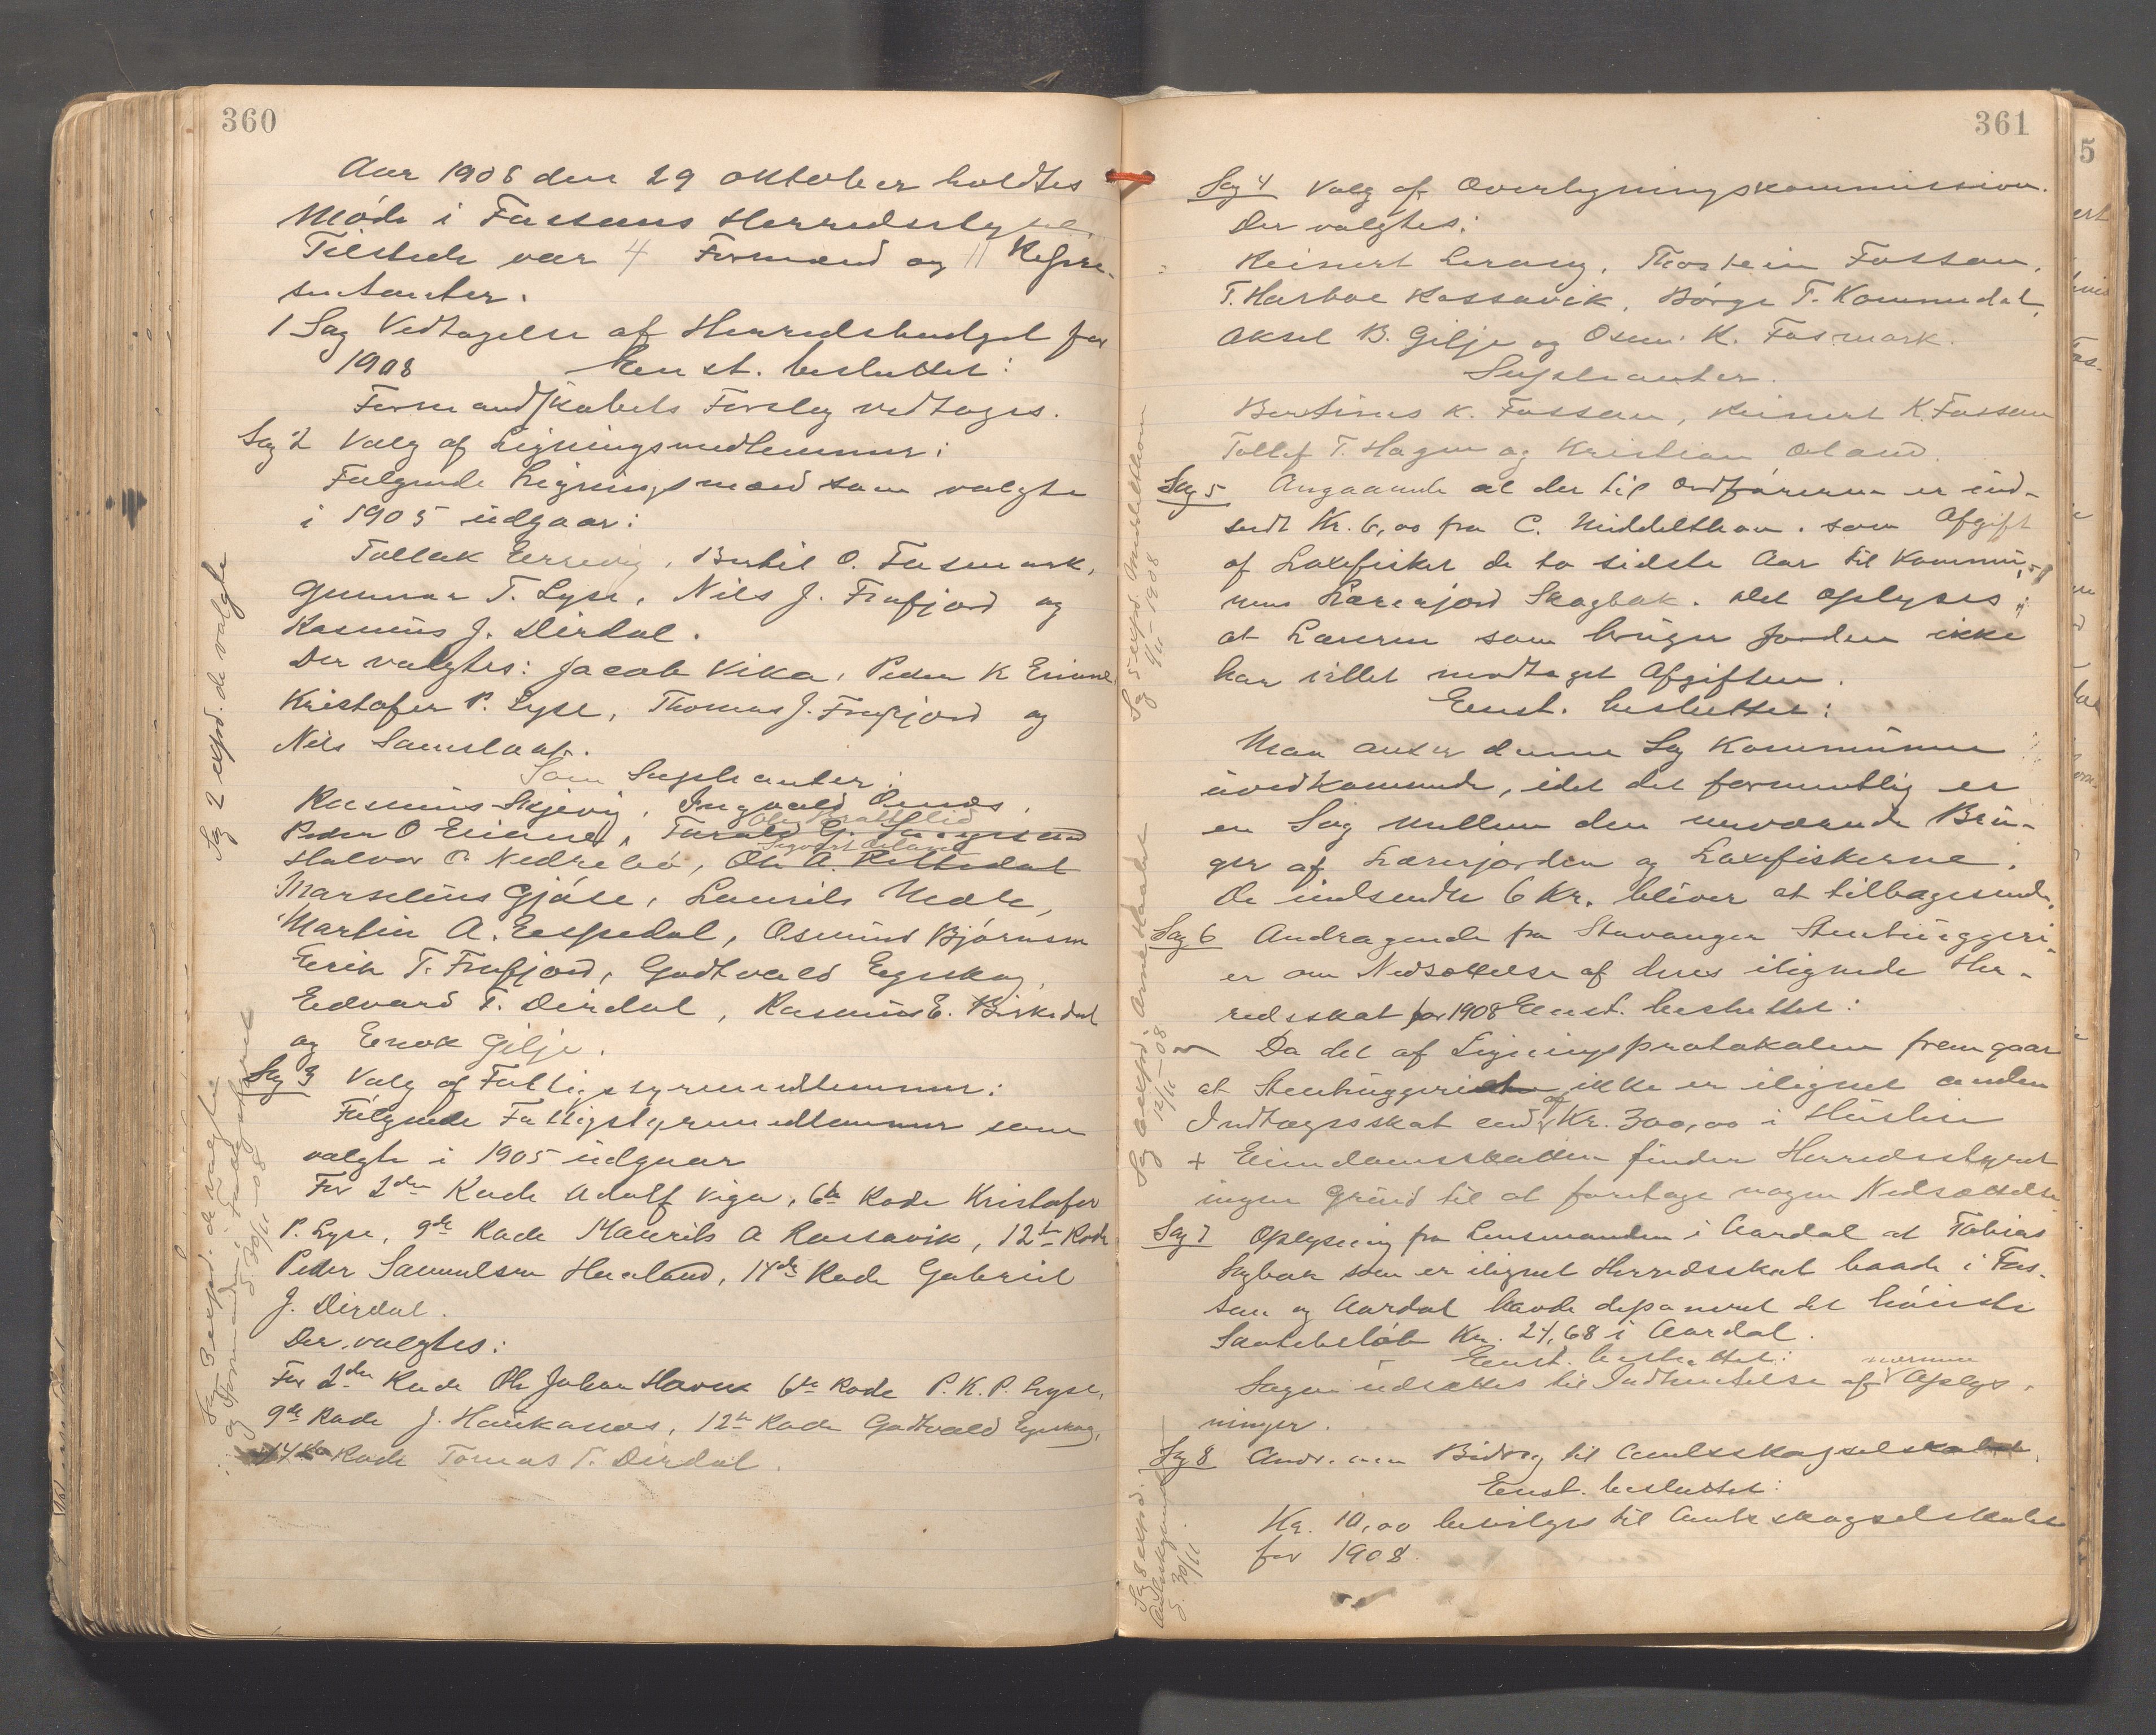 360
Aar 1908 den 29 oktober holdtes
Møde i Fossans Herredsstyre.
Tilstede var 4 Formænd og 11 Repre-
sentanter.
1 Sag Vedtagelse af Herredsbudget for
1908 Eenst. besluttet:
Formandskabets Forslag vedtages.
Sag 2 Valg af Ligningsmedlemmer:
Følgende Ligningsmænd som valgte
i 1905 udgaar:
Tollak Eerrevig, Bertil O. Fosmark,
Gunnar T. Lyse, Nils J. Frafjord og
Rasmus J. Dirdal.
Der valgtes: Jacob Vika, Peder K Eriane
Kristofer P. Lyse, Thomas J. Frafjord og
Nils Samslaat.
Som Supleanter:
Rasmus Skjevig, Ingvald Omås,
Olig Bratteslid
Peder O Eriane, Torald G. Sangesand
Sigvart Øeland
Halvor O Nedrebø, Ole A. Rettedal
Marselius Gjøse, Laurits Mæle,
Martin A. Eespedal, Osmund Bjørnsen
Eerik T. Frafjord, Godtvald Egeskog,
Eedvard T. Dirdal, Rasmus E. Birkedal
og Eenok Gilje.
Sag 3 Valg af Fattigstyremedlemmer:
Følgende Fattigstyremedlemmer som
valgte i 1905 udgaar
For 2den Rode Adolf Viga, 6te Rode Kristofer
P. Lyse, 9de Rode Maurits A Rossavik, 12te Rode
Peder Samuelsen Haaland, 14de Rode Gabriel
J. Dirdal.
Der valgtes:
For 2den Rode Ole Johan Havn 6te Rode P. K. P. Lyse,
9de Rode J. Haukanæs, 12te Rode Godtvald Egeskog,
14de Rode Tomas T. Dirdal.
Sag 2 expd. de valgte
Sag 3 expd. de valgte
og Formanden i Fattigstyret
d. 30/11-08
361
Sag 4 Valg af Overligningskommission.
Der valgtes:
Reinert Lerang, Thostein Fossan,
T. Harboe Rossavik, Børge T. Kommedal,
Aksel B. Gilje og Osm. K. Fosmark.
Supleanter.
Bertinus K. Fossan, Reinert K. Fossan
Tollef T. Hagen og Kristian Øland.
Sag 5 Angaaende at der til Ordføreren er ind-
sendt Kr. 6,00 fra C. Middelthon. som Afgift
af Laxefisket de to sidste Aar til Kommu-
nens Lærerjord Skogbak. Det oplyses
at Læreren som bruger Jorden ikke
har villet modtaget Afgiften.
Eenst. besluttet:
Man anser denne Sag Kommunen
uvedkommende, idet det formentlig er
en Sag mellem den nuværende Bru-
ger af Lærerjorden og Laxefiskerne.
De indsendte 6 Kr. bliver at tilbagesende.
Sag 6 Andragende fra Stavanger Stenhuggeri-
er om Nedsættelse af deres ilignede Her-
redsskat for 1908 Eenst. besluttet:
Da det af Ligningsprotokolen fremgaar
at Stenhuggeriet ikke er ilignet anden
Indtægsskat end af Kr. 300,00 i Husleie
+ Eiendomsskatten finder Herredsstyret
ingen Grund til at foretage nogen Nedsættelse
Sag 7 Oplysning fra Lensmanden i Aardal at Tobias
Nybøe som er ilignet Herredsskat baade i Fos-
san og Aardal havde deponeret det høieste
Skattebeløb Kr. 24,68 i Aardal.
Eenst. besluttet:
Sagen udsættes til Indhentelse af nærmere Oplys-
ninger.
Sag 8 Andr. om Bidrag til Amtsskogselskabet.
Eenst. besluttet:
Kr. 10,00 bevilges til Amtsskogselskabet
for 1908.
Sag 5 expd. Middelthon
9/11-1908
12/11-08
Sag 8 expd.
d. 30/11.
5